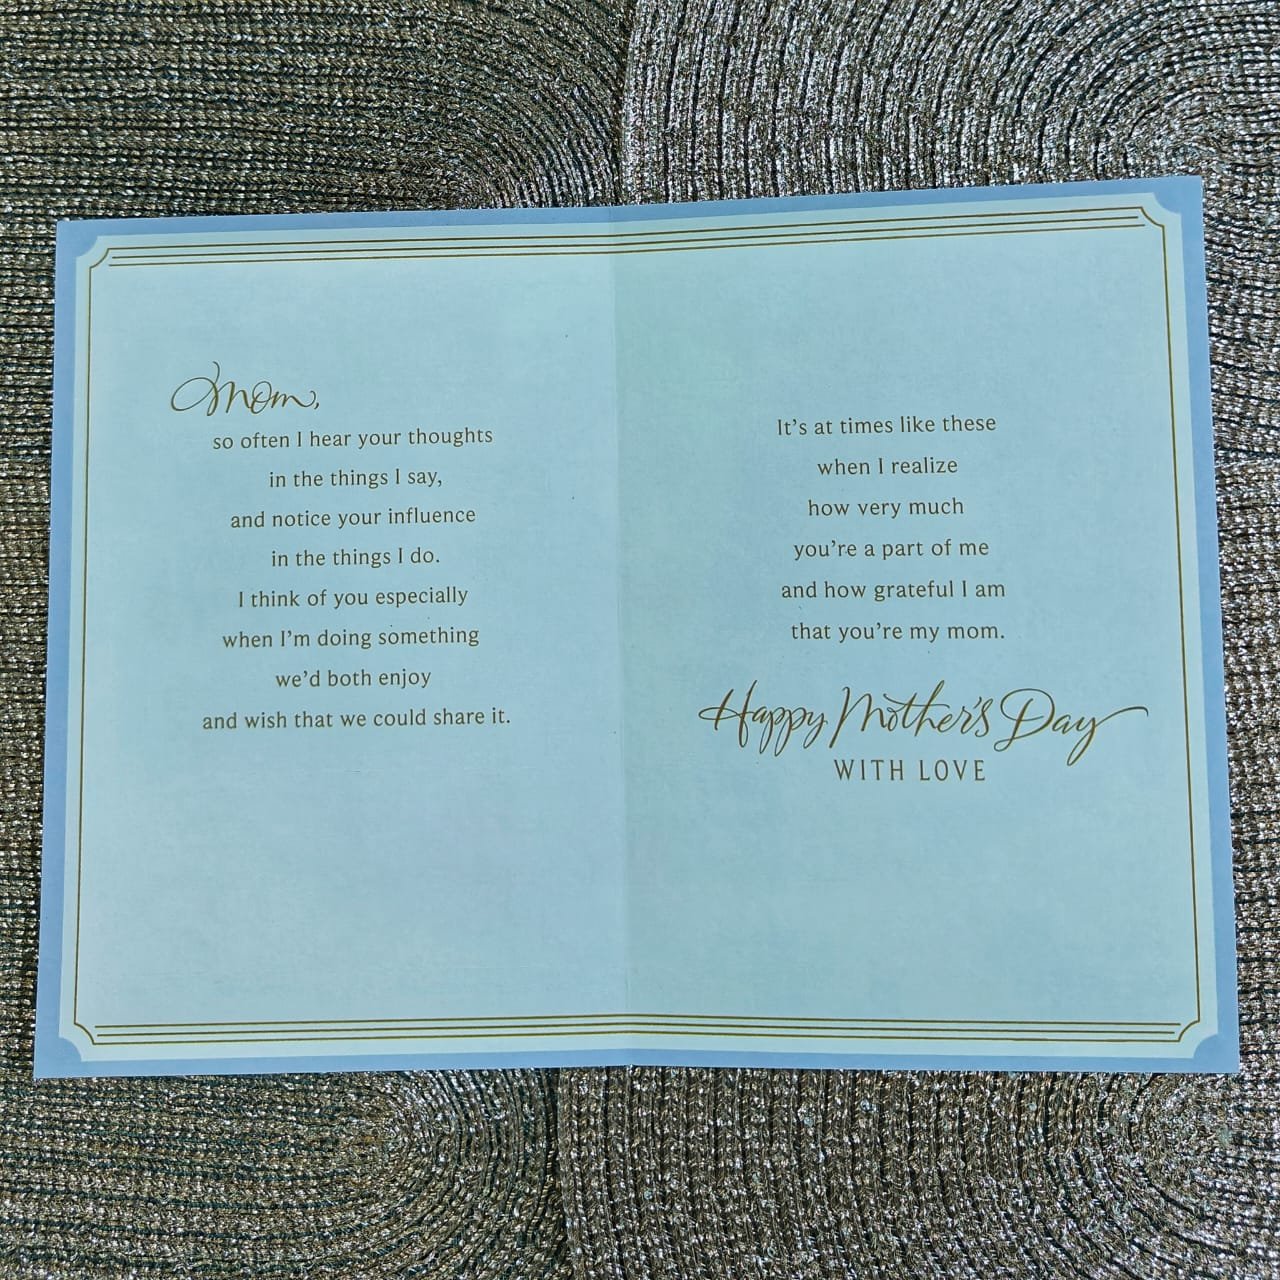 Mom,
so often I hear your thoughts
in the things I say,
and notice your influence
in the things I do.
I think of you especially
when I'm doing something
we'd both enjoy
and wish that we could share it.
It's at times like these
when I realize
how very much
you're a part of me
and how grateful I am
that you're my mom.
Happy Mother's Day
WITH LOVE